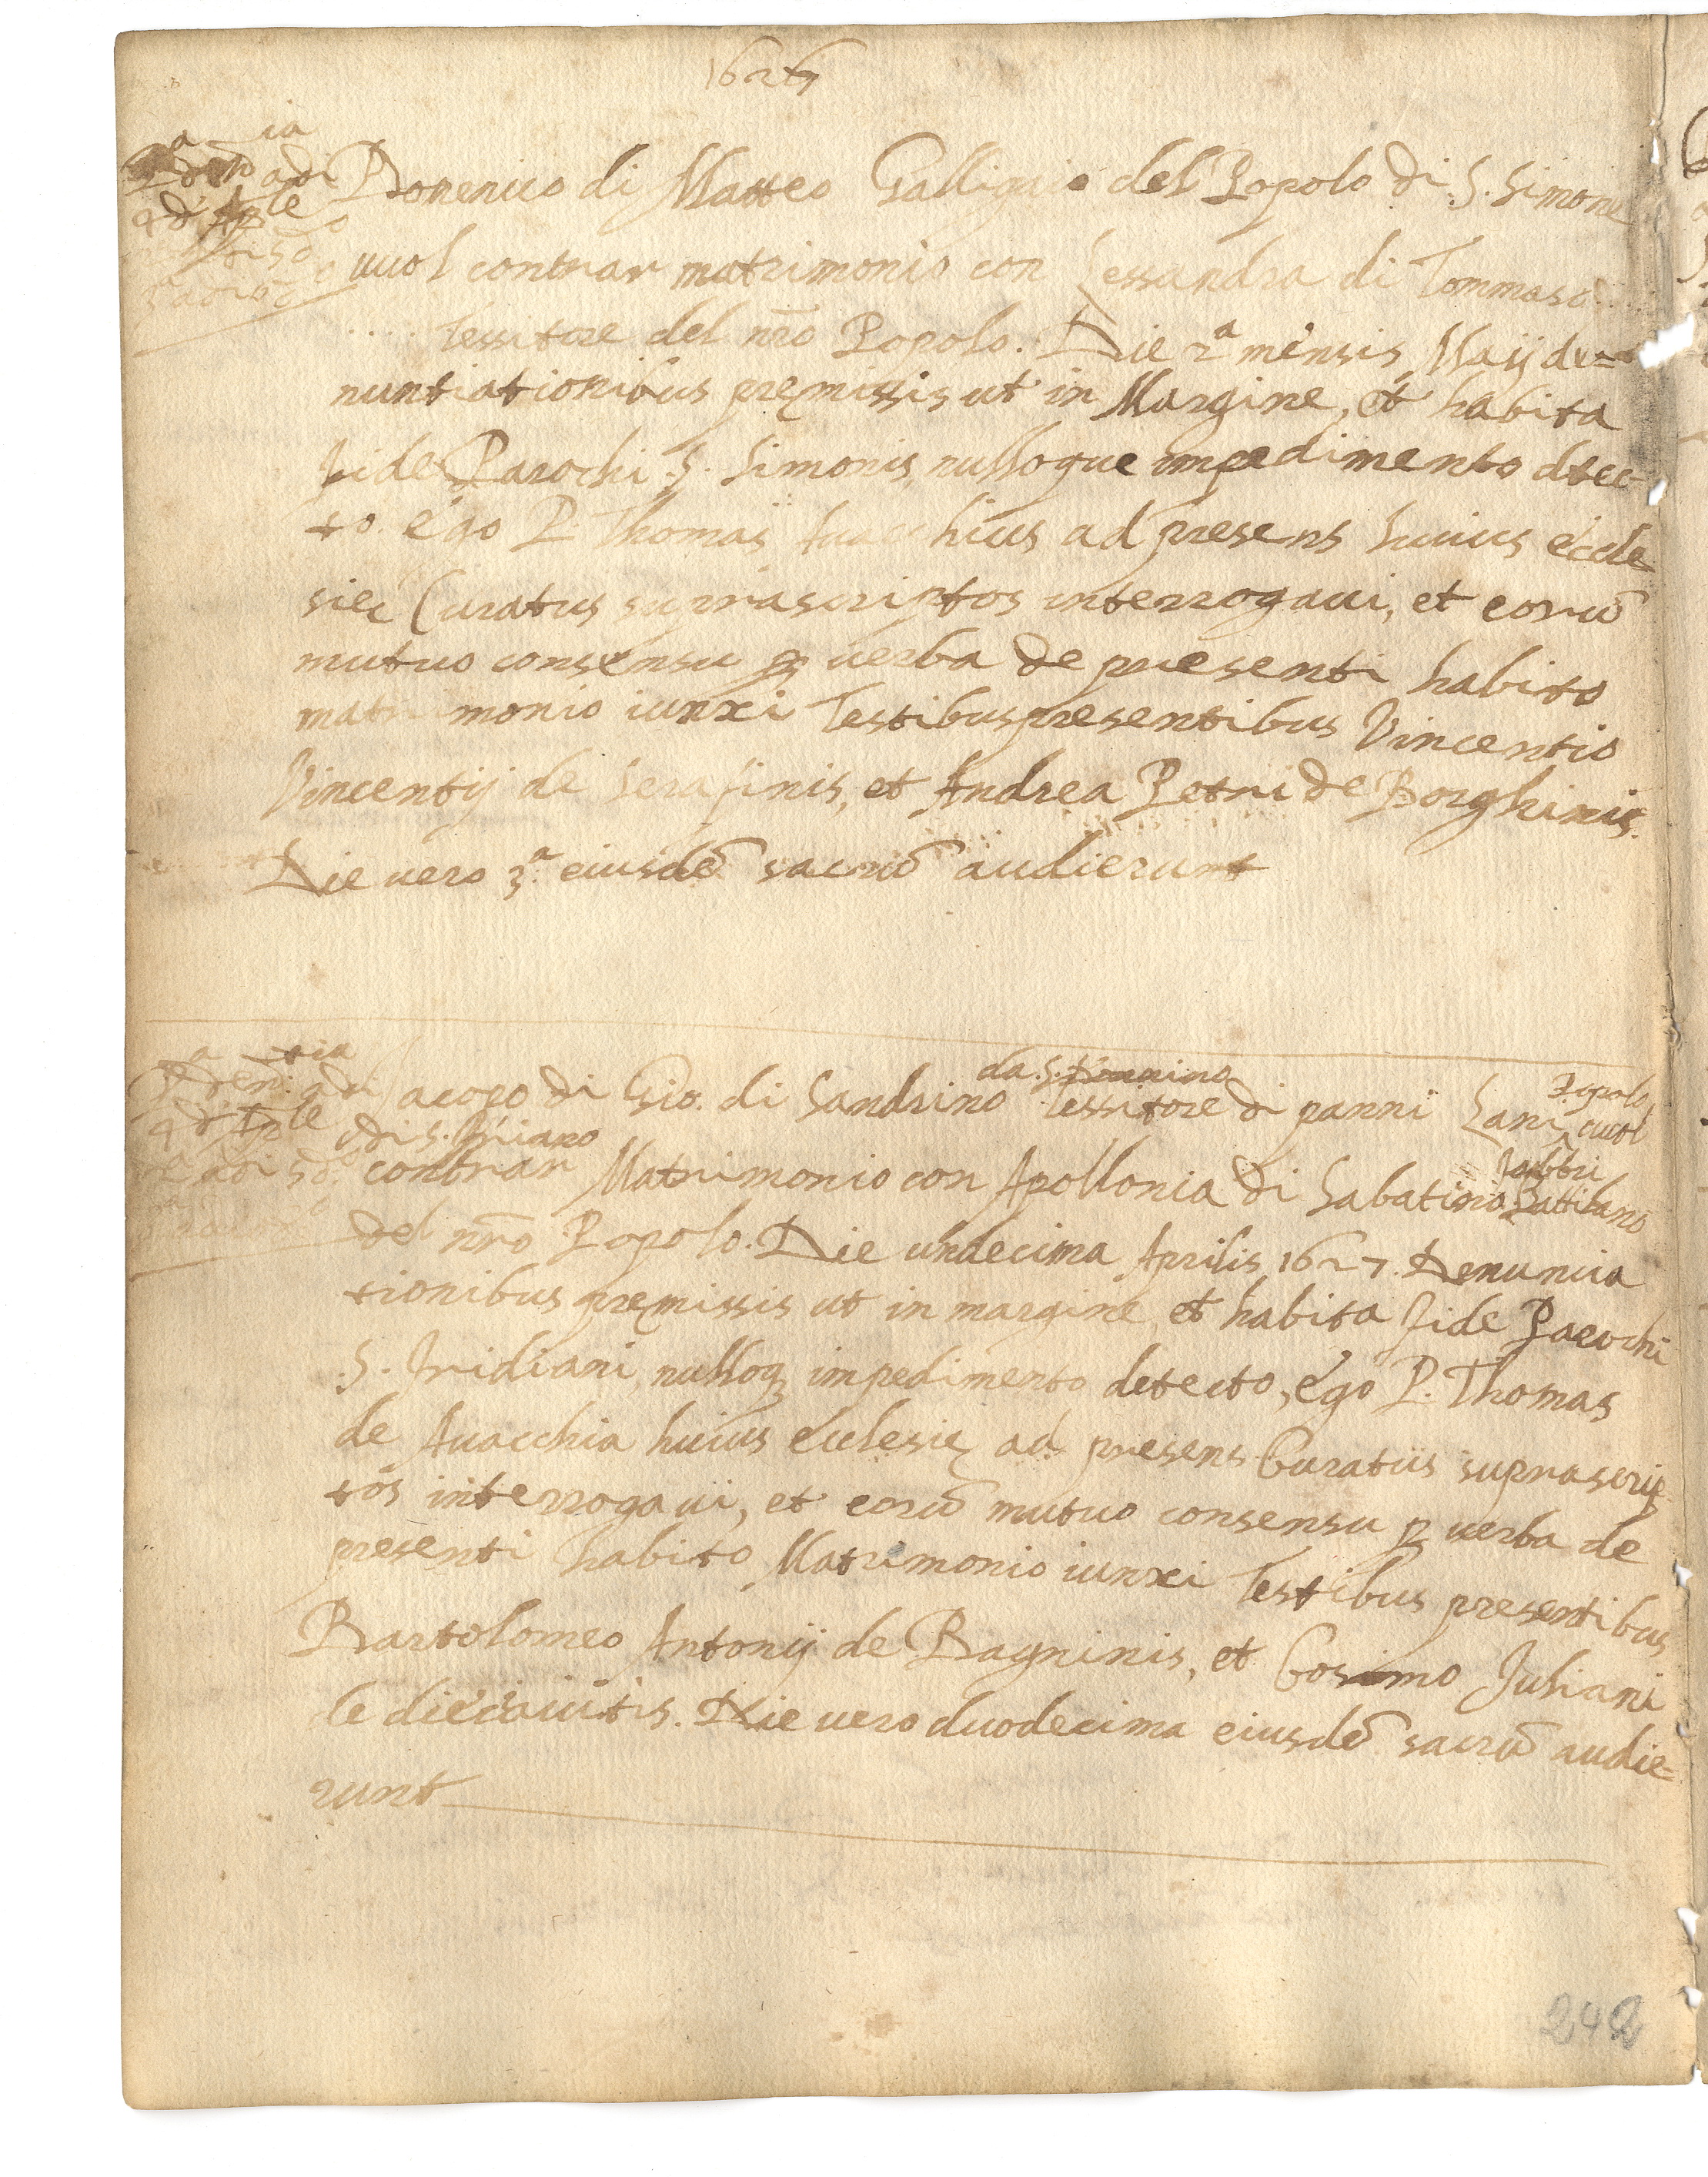 1627
Domenico di Matteo Galligaio del Popolo di S. Simone
vuol contrar matrimonio con Lessandra di Tommaso
Tessitore del nr̃o Popolo. Die 2ª mensis Maij de=
nuntiationibus premissis ut in Margine, et habita
fide Parochi S. Simonis, nulloque impedimento dtec-
to. ego P. Thomas Auacchius ad presens huius eccle
sie Curatus suprascriptos interrogaui, et eorũ
mutuo consensu p uerba de presenti habito
matrimonio iunxi Testibus presentibus Vincentio
Vincentij de Serafinis, et Andrea Petri de Borghinis.
Die uero 3ª. eiusdẽ sacrũ audierunt
pª den.tia adi
9 d'Aple
2ª adi sd.º
Jacopo di Gio. di Sandrino da S. Donnino Tessitore di panni Lani, Popolo vuol
di S. Friano
contrar Matrimonio con Apollonia di Sabatino fabbri Battilano
del nr̃o Popolo. Die undecima Aprilis 1627. Denuncia
tionibus premissis ut in margine et habita fide Parochi
S. Fridiani, nulloq; impedimento detecto, ego P. Thomas
de Auacchia huius ecclesie ad presens Curatus suprascrip
tos interrogaui, et eorũ mutuo consensu p uerba de
presenti habito Matrimonio iunxi Testibus presentibus
Bartolomeo Antonij de Bagninis, et Cosimo Juliani
de dieciaiutis. Die uero duodecima eiusdẽ sacrũ audie=
runt
242